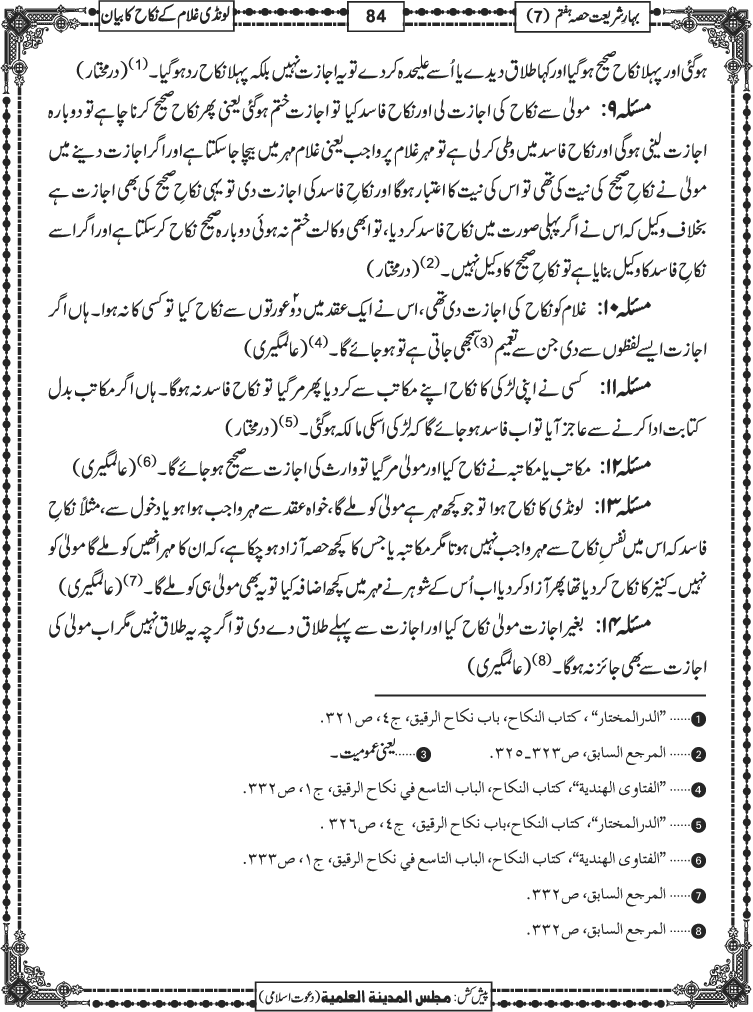 بہارِ شریعت حصہ ہفتم (7)
84
لونڈی غلام کے نکاح کا بیان
ہوگئی اور پہلا نکاح صحیح ہوگیا اور کہا طلاق دیدے یا اُسے علیحدہ کر دے تو یہ اجازت نہیں بلکہ پہلا نکاح رد ہوگیا۔(1) (درمختار)
مسئلہ ۹: مولیٰ سے نکاح کی اجازت لی اور نکاح فاسد کیا تو اجازت ختم ہوگئی یعنی پھر نکاح صحیح کرنا چاہے تو دوبارہ
اجازت لینی ہوگی اور نکاح فاسد میں وطی کر لی ہے تو مہر غلام پر واجب یعنی غلام مہر میں بیچا جاسکتا ہے اور اگر اجازت دینے میں
مولیٰ نے نکاحِ صحیح کی نیت کی تھی تو اس کی نیت کا اعتبار ہوگا اور نکاحِ فاسد کی اجازت دی تو یہی نکاحِ صحیح کی بھی اجازت ہے
بخلاف وکیل کہ اس نے اگر پہلی صورت میں نکاح فاسد کر دیا، تو ابھی وکالت ختم نہ ہوئی دوبارہ صحیح نکاح کرسکتا ہے اور اگر اسے
نکاحِ فاسد کا وکیل بنایا ہے تو نکاحِ صحیح کا وکیل نہیں۔(2) (درمختار)
مسئلہ ۱۰: غلام کو نکاح کی اجازت دی تھی، اس نے ایک عقد میں دو۲ عورتوں سے نکاح کیا تو کسی کا نہ ہوا۔ ہاں اگر
اجازت ایسے لفظوں سے دی جن سے تعمیم(3) سمجھی جاتی ہے تو ہو جائے گا۔(4) (عالمگیری)
مسئلہ ۱۱: کسی نے اپنی لڑکی کا نکاح اپنے مکاتب سے کر دیا پھر مرگیا تو نکاح فاسد نہ ہوگا۔ ہاں اگر مکاتب بدل
کتابت ادا کرنے سے عاجز آیا تو اب فاسد ہو جائے گا کہ لڑکی اسکی مالکہ ہوگئی۔(5) (درمختار)
مسئلہ ۱۲: مکاتب یا مکاتبہ نے نکاح کیا اور مولیٰ مرگیا تو وارث کی اجازت سے صحیح ہو جائے گا۔(6) (عالمگیری)
مسئلہ ۱۳: لونڈی کا نکاح ہوا تو جو کچھ مہر ہے مولیٰ کو ملے گا، خواہ عقد سے مہر واجب ہوا ہو یا دخول سے، مثلاً نکاحِ
فاسد کہ اس میں نفسِ نکاح سے مہر واجب نہیں ہوتا مگر مکاتبہ یا جس کا کچھ حصہ آزاد ہو چکا ہے، کہ ان کا مہر انھیں کو ملے گا مولیٰ کو
نہیں۔ کنیز کا نکاح کر دیا تھا پھر آزاد کر دیا اب اُس کے شوہر نے مہر میں کچھ اضافہ کیا تو یہ بھی مولیٰ ہی کو ملے گا۔(7) (عالمگیری)
مسئلہ ۱۴: بغیر اجازت مولیٰ نکاح کیا اور اجازت سے پہلے طلاق دے دی تو اگرچہ یہ طلاق نہیں مگر اب مولیٰ کی
اجازت سے بھی جائز نہ ہوگا۔(8) (عالمگیری)
1 ...... "الدرالمختار"، کتاب النکاح، باب نکاح الرقیق، ج٤، ص٣٢١.
2 ...... المرجع السابق، ص٣٢٣-٣٢٥. 3 ...... یعنی عمومیت۔
4 ...... "الفتاوی الھندیة"، کتاب النکاح، الباب التاسع في نکاح الرقیق، ج١، ص٣٣٢.
5 ...... "الدرالمختار"، کتاب النکاح،باب نکاح الرقیق، ج٤، ص٣٢٦ .
6 ...... "الفتاوی الھندیة"، کتاب النکاح، الباب التاسع في نکاح الرقیق، ج١، ص٣٣٣.
7 ...... المرجع السابق، ص٣٣٢.
8 ...... المرجع السابق، ص٣٣٢.
پیش کش: مجلس المدینة العلمیة (دعوت اسلامی)